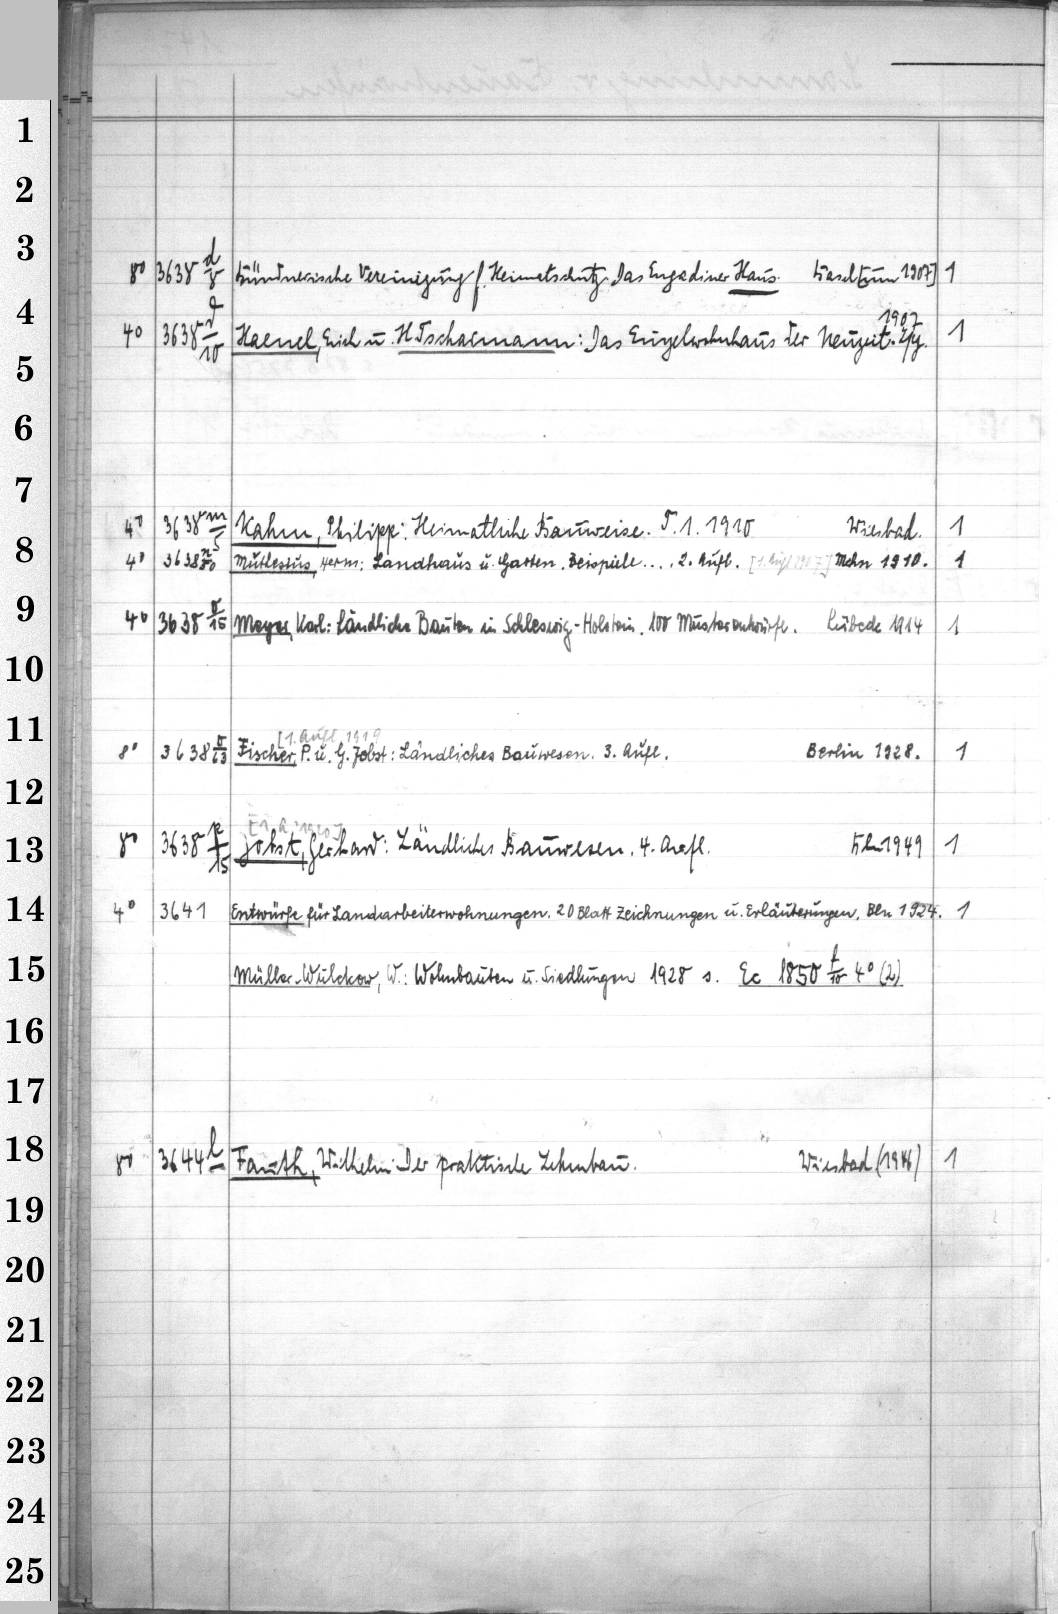 1
2
3
8° 3638 d/8 Bündnerische Vereinigung f. Heimatschutz. Das Engadiner Haus. Basel [um 1907] 1
4
1907
4° 3638 /10 Haenel, Erich u. H Tscharmann: Das Einzelwohnhaus der Neuzeit. Lpzg. 1
5
6
7
4° 3638 m/5 Kahm, Philipp: Heimatliche Bauweise. T. 1. 1910 Wiesbad. 1
8
4° 3638 n/50 Muthesius, Herm: Landhaus u. Garten. Beispiele ... . 2. Aufl. [1. Aufl 1907] Mchn 1910. 1
9
4° 3638 o/15 Meyer, Karl: Ländliche Bauten in Schleswig-Holstein. 100 Musterentwürfe. Lübeck 1914 1
10
11
[1. Aufl. 1919
8° 3638 o/63 Fischer, P. u. G. Jobst: Ländliches Bauwesen. 3. Aufl. Berlin 1928. 1
12
[1. A. 1920]
13
8° 3638 p/15 Jobst, Gerhard: Ländliches Bauwesen. 4. Aufl. Bln 1949 1
14
4° 3641 Entwürfe für Landarbeiterwohnungen. 20 Blatt Zeichnungen u. Erläuterungen. Bln 1924. 1
15
Müller-Wulckow, W.: Wohnbauten u. Siedlungen 1928 s. Ec 1850 f/10 4° (2)
16
17
18
8° 3644 l Fauth, Wilhelm: Der praktische Lehmbau. Wiesbad (1946) 1
19
20
21
22
23
24
25